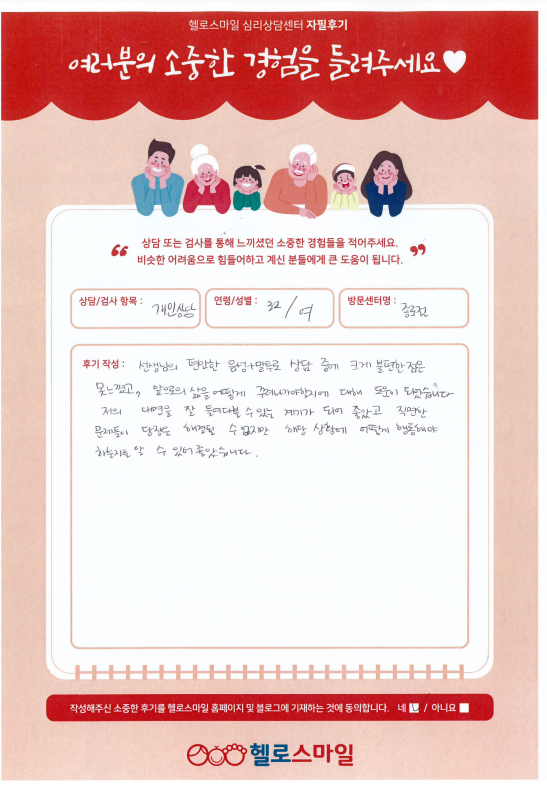 헬로스마일 심리상담센터 자필후기
여러분의 소중한 경험을 들려주세요
“ 상담 또는 검사를 통해 느끼셨던 소중한 경험들을 적어주세요. ”
비슷한 어려움으로 힘들어하고 계신 분들에게 큰 도움이 됩니다.
상담/검사 항목 : 개인상담 연령/성별 : 32 / 여 방문센터명 : 종로점
후기 작성 : 선생님의 편안한 음성과 말투로 상담 중에 크게 불편한 점은
못느꼈고, 앞으로의 삶을 어떻게 꾸려나가야할지에 대해 도움이 되었습니다
저의 내면을 잘 들여다볼 수 있는 계기가 되어 좋았고 직면한
문제들이 당장은 해결될 수 없지만 해당 상황에 어떻게 행동해야
하는지를 알 수 있어 좋았습니다.
작성해주신 소중한 후기를 헬로스마일 홈페이지 및 블로그에 기재하는 것에 동의합니다. 네 / 아니요
헬로스마일